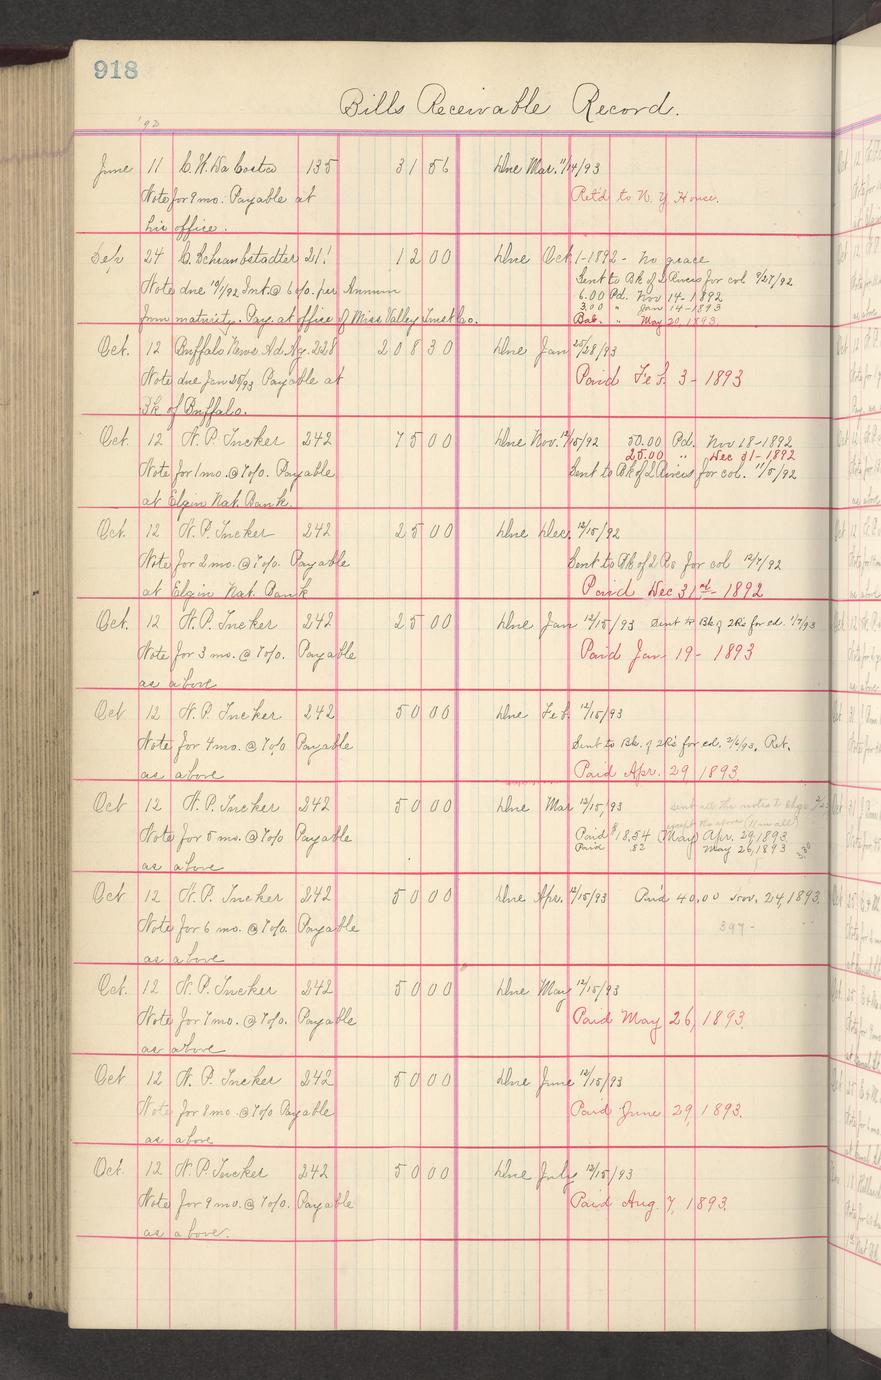 918
Bills Receivable Record.
'92
June 11 C. H. Da Costa 135 31 56 Due Mar. 11/14/93
Note for 9 mo. Payable at Ret'd to N. Y. House.
his office.
Sep 24 C. Schraubstadter 211 12 00 Due Oct 1-1892 - no grace
Note due 10/1/92 Int. @ 6%. per Annum Sent to Bk of 2 Rivers for col 9/27/92
6.00 Pd. Nov 14-1892
3.00 " Jan 14-1893
from maturity. Pay. at office of Miss Valley Trust Co. Bal. " May 20, 1893.
Oct. 12 Buffalo News Ad. Ag. 228 208 30 Due Jan 25/28/93
Note due Jan 25/93 Payable at Paid Feb. 3-1893
Bk of Buffalo.
Oct. 12 H. P. Tucker 242 75 00 Due Nov. 12/15/92 50.00 Pd. Nov 18-1892
25.00 " Dec 31-1892
Note for 1 mo. @ 7%. Payable Sent to Bk of 2 Rivers for col. 11/5/92
at Elgin Nat. Bank.
Oct. 12 H. P. Tucker 242 25 00 Due Dec. 12/15/92
Note for 2 mo. @ 7%. Payable Sent to Bk of 2 Rs for col 12/7/92
at Elgin Nat. Bank Paid Dec 31st - 1892
Oct. 12 H. P. Tucker 242 25 00 Due Jan 12/15/93 Sent to Bk of 2Rs for col. 1/7/93
Note for 3 mo. @ 7%. Payable Paid Jan 19-1893
as above
Oct 12 H. P. Tucker 242 50 00 Due Feb. 12/15/93
Note for 4 mo. @ 7% Payable Sent to Bk. of 2Rs for col. 2/6/93. Ret.
as above Paid Apr. 29 1893.
Oct 12 H. P. Tucker 242 50 00 Due Mar 12/15/93 sent all the notes to
except the above
Note for 5 mo. @ 7% Payable Paid $18.54 (May) Apr. 29, 1893.
Paid .82 May 26, 1893
as above
Oct 12 H. P. Tucker 242 50 00 Due Apr. 12/15/93 Paid 40.00 Nov. 24, 1893.
Note for 6 mo. @ 7%. Payable 397-
as above
Oct. 12 H. P. Tucker 242 50 00 Due May 12/15/93
Note for 7 mo. @ 7%. Payable Paid May 26, 1893.
as above
Oct 12 H. P. Tucker 242 50 00 Due June 12/15/93
Note for 8 mo. @ 7% Payable Paid June 29, 1893.
as above
Oct. 12 H. P. Tucker 242 50 00 Due July 12/15/93
Note for 9 mo. @ 7%. Payable Paid Aug. 7, 1893.
as above.